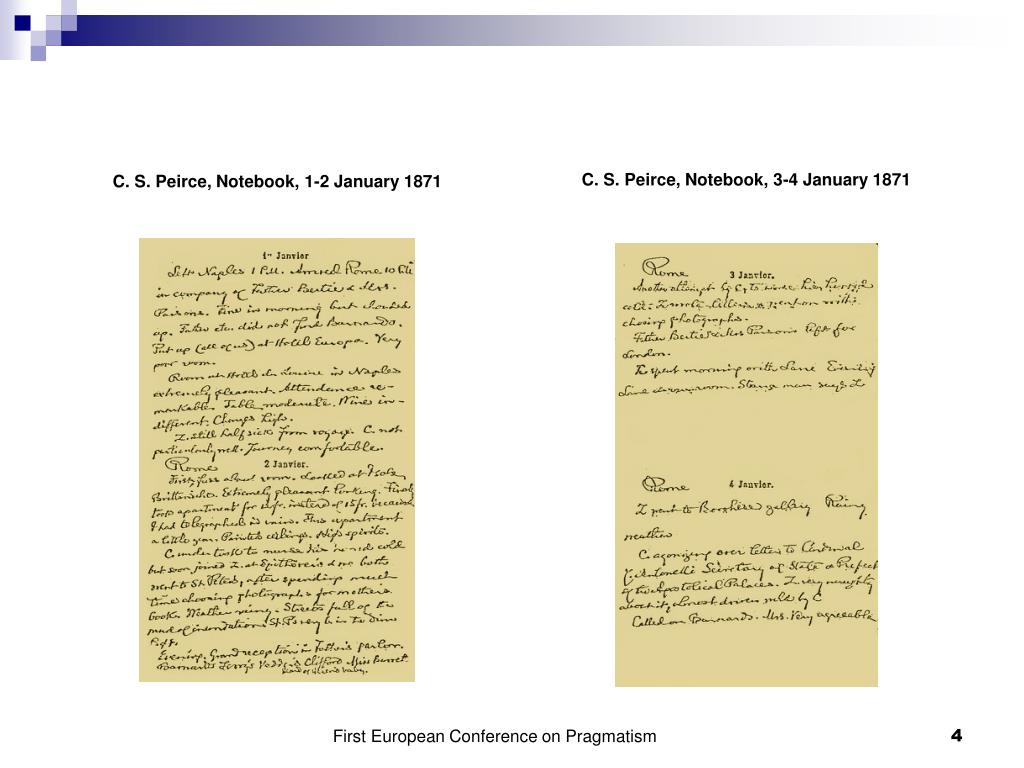 C. S. Peirce, Notebook, 1-2 January 1871
1er Janvier
Left Naples 1 P.M. Arrived Rome 10
in company of Father Bertie & Mrs.
Parsons. Fine in morning but clouded
up. Father etc. did not find Barnards.
Put up (all of us) at Hotel Europa. Very
poor room.
Room at Hotel de in Naples
extremely pleasant. Attendance re-
markable. Table moderate. Wines in-
different. Charges high.
Z. still half sick from voyage. C. not
particularly well. Journey comfortable.
Rome 2 Janvier.
First, fuss about room. Looked at
Extremely pleasant looking. Finally
took apartment for instead of 15fr. because
I had telegraphed in vain. This apartment
a little gem. Painted ceilings. High spirits.
C. undertook to nurse his cold
but soon joined Z. at & we both
went to St. Peters, after spending much
time choosing photographs for mothers
book. Weather rainy. Streets full of the
mud of inundation. St. is in the dim
light.
Evening. Grand reception in parlor.
Barnards Clifford Miss
C. S. Peirce, Notebook, 3-4 January 1871
Rome 3 Janvier.
Another attempt by C. to nurse his
cold. Z. wrote letters & went on with
chosing photographs.
Father Bertie & Mrs Parsons left for
London.
spent morning with Evening
Strange man says
Rome 4 Janvier.
Z went to Borghese gallery Rainy
weather
C. agonizing over letter to Cardinal
Antonelli Secretary of State & Prefect
of the Apostolical Palaces. Z very naughty
about it, almost driven wild by C
Called on Barnards. Mrs. very agreeable
First European Conference on Pragmatism
4